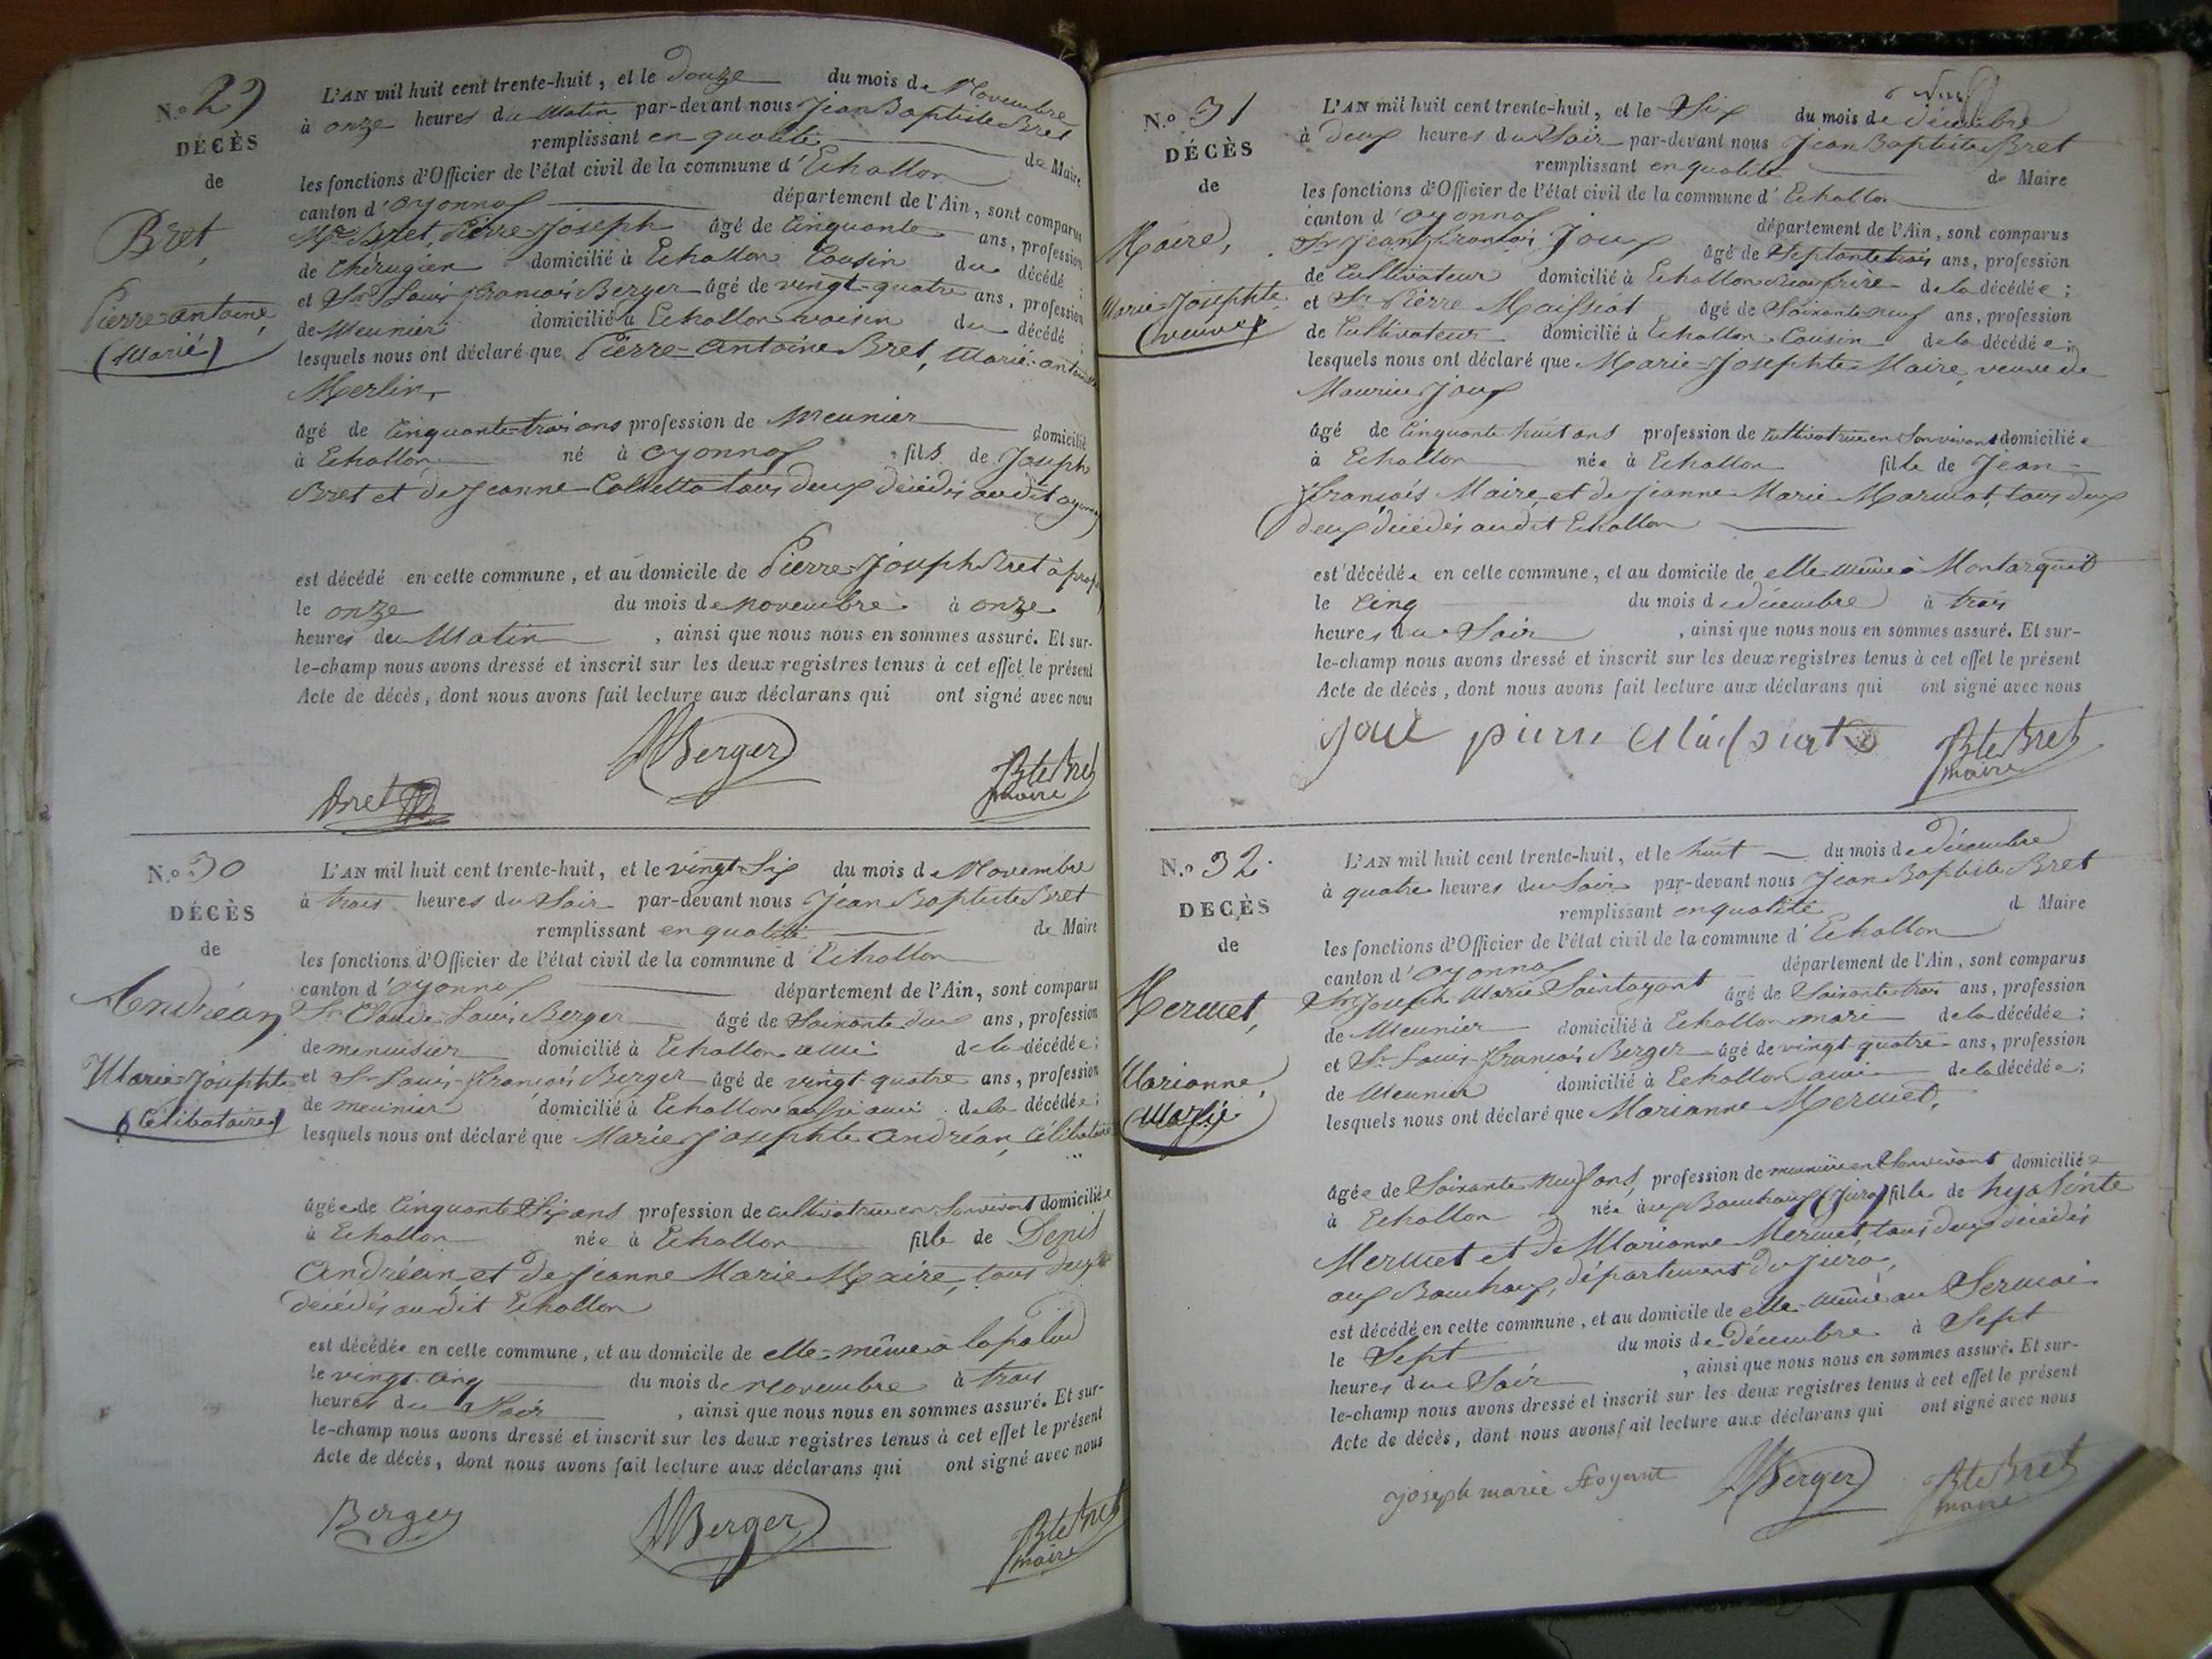 N.o 29
DÉCÈS
de
Bret,
Pierre-antoine,
(Marié)
L'AN mil huit cent trente-huit, et le douze du mois de Novembre
à onze heures du Matin par-devant nous Jean Baptiste Bret
remplissant en qualité de Maire
les fonctions d'Officier de l'état civil de la commune d'Echallon
canton d'oyonnax département de l'Ain, sont comparus
Mr Bret, Pierre-Joseph âgé de Cinquante ans, profession
de Chirugien domicilié à Echallon Cousin du décédé ;
et Sr Louis François Berger âgé de vingt-quatre ans, profession
de Meunier domicilié à Echallon voisin du décédé ;
lesquels nous ont déclaré que Pierre-Antoine Bret, Marié
Merlin,
âgé de Cinquante-trois ans profession de Meunier domicilié
à Echallon né à oyonnax fils de Joseph
Bret et de Jeanne Colletta tous deux décédés audit oyonnax
est décédé en cette commune, et au domicile de Pierre-Joseph Bret
le onze du mois de novembre à onze
heures du Matin , ainsi que nous nous en sommes assuré. Et sur-
le-champ nous avons dressé et inscrit sur les deux registres tenus à cet effet le présent
Acte de décès, dont nous avons fait lecture aux déclarans qui ont signé avec nous
Berger
Bret
Bte Bret
maire
N.o 30
DÉCÈS
de
Andréan
Marie-Josephte
(Célibataire)
L'AN mil huit cent trente-huit, et le vingt-Six du mois de Novembre
à trois heures du Soir par-devant nous Jean Baptiste Bret
remplissant en qualité de Maire
les fonctions d'Officier de l'état civil de la commune d'Echallon
canton d'oyonnax département de l'Ain, sont comparus
Sr Claude-Louis Berger âgé de Soixante deux ans, profession
de menuisier domicilié à Echallon ami de la décédée ;
et Sr Louis-François Berger âgé de vingt-quatre ans, profession
de meunier domicilié à Echallon aussi ami de la décédée ;
lesquels nous ont déclaré que Marie Josephte Andréan, Célibataire
âgée de Cinquante Six ans profession de cultivatrice en Son vivant domiciliée
à Echallon née à Echallon fille de Denis
Andréan, et de Jeanne Marie Maire, tous deux
décédés audit Echallon
est décédée en cette commune, et au domicile de elle-même à lapalud
le vingt-cinq du mois de Novembre à trois
heures du Soir , ainsi que nous nous en sommes assuré. Et sur-
le-champ nous avons dressé et inscrit sur les deux registres tenus à cet effet le présent
Acte de décès, dont nous avons fait lecture aux déclarans qui ont signé avec nous
Berger
Berger
Bte Bret
maire
N.o 31
DÉCÈS
de
Maire,
Marie-Josephte
(veuve)
L'AN mil huit cent trente-huit, et le Six du mois de décembre
à deux heures du Soir par-devant nous Jean Baptiste Bret
remplissant en qualité de Maire
les fonctions d'Officier de l'état civil de la commune d'Echallon
canton d'oyonnax département de l'Ain, sont comparus
Sr Jean François Joux âgé de Septante trois ans, profession
de Cultivateur domicilié à Echallon Beaufrère de la décédée ;
et Sr Pierre Maissiat âgé de Soixante neuf ans, profession
de Cultivateur domicilié à Echallon Cousin de la décédée ;
lesquels nous ont déclaré que Marie-Josephte Maire, veuve de
Maurice Joux
âgé de Cinquante huit ans profession de Cultivatrice en Son vivant domiciliée
à Echallon née à Echallon fille de Jean-
François Maire, et de Jeanne Marie Marmot, tous deux
deux décédés audit Echallon
est décédée en cette commune, et au domicile de elle même à Montarquit
le Cinq du mois de décembre à trois
heures du Soir , ainsi que nous nous en sommes assuré. Et sur-
le-champ nous avons dressé et inscrit sur les deux registres tenus à cet effet le présent
Acte de décès, dont nous avons fait lecture aux déclarans qui ont signé avec nous
Joux pierre
Bte Bret
maire
N.o 32.
DÉCÈS
de
Mermet,
Marianne,
Mariée
L'AN mil huit cent trente-huit, et le huit du mois de décembre
à quatre heures du Soir par-devant nous Jean Baptiste Bret
remplissant en qualité d Maire
les fonctions d'Officier de l'état civil de la commune d'Echallon
canton d'oyonnax département de l'Ain, sont comparus
Sr Joseph Marie Saintoyant âgé de Soixante-trois ans, profession
de Meunier domicilié à Echallon mari de la décédée ;
et Sr Louis-François Berger âgé de vingt-quatre ans, profession
de Meunier domicilié à Echallon ami de la décédée ;
lesquels nous ont déclaré que Marianne Mermet,
âgée de Soixante-neuf ans, profession de meunière en Son vivant domiciliée
à Echallon née aux Bouchoux (Jura) fille de hyaSinte
Mermet et de Marianne Mermet, tous deux décédés
aux Bouchoux, département du Jura,
est décédé en cette commune, et au domicile de elle-même au Sermoi
le Sept du mois de Décembre à Sept
heures du Soir , ainsi que nous nous en sommes assuré. Et sur-
le-champ nous avons dressé et inscrit sur les deux registres tenus à cet effet le présent
Acte de décès, dont nous avons fait lecture aux déclarans qui ont signé avec nous
joseph marie
Berger
Bte Bret
maire